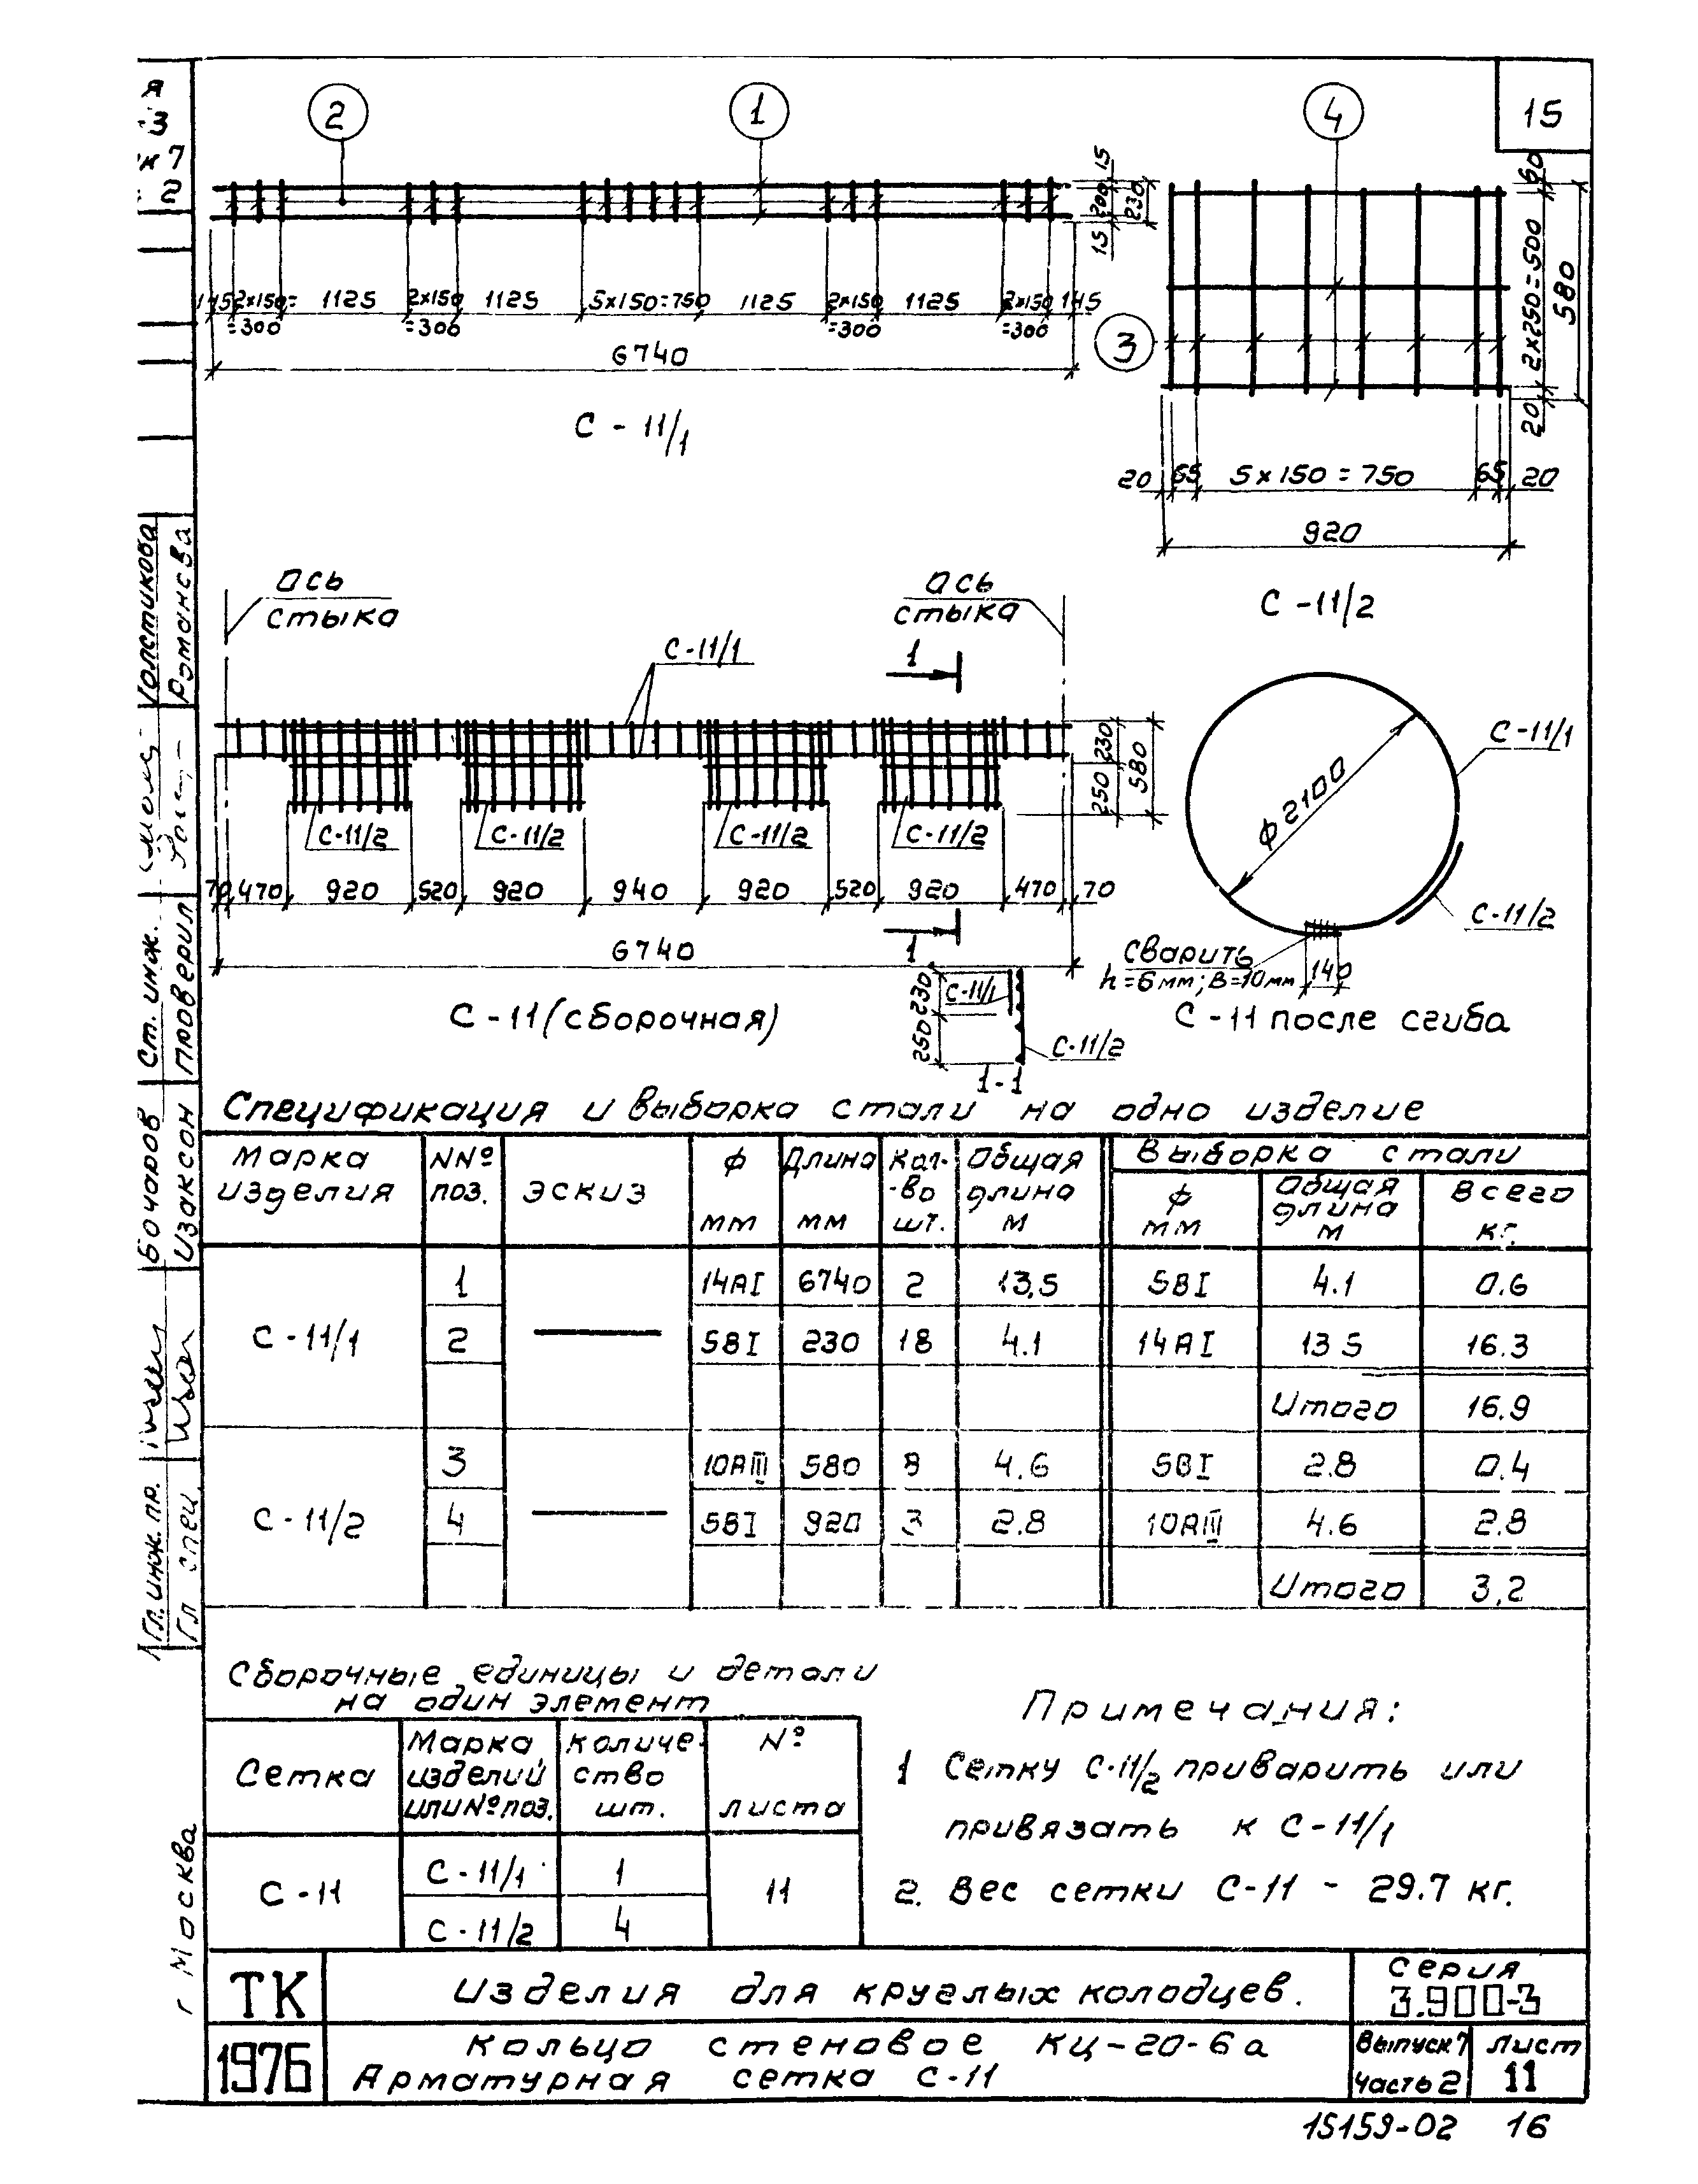 15
я
-3
к 7
2
2
1
4
3
15
200
230
15
145
2×150=
=300
1125
2×150
=300
1125
5×150=750
1125
2×150
=300
1125
2×150
=300
145
6740
С - 11/1
60
2×250=500
580
20
20
65
5×150=750
65
20
920
С - 11/2
Ось
стыка
Ось
стыка
С-11/1
1
С-11/2
С-11/2
С-11/2
С-11/2
230
250
580
70
470
920
520
920
940
920
520
920
470
70
6740
1
С - 11 (сборочная)
230
250
С-11/1
С-11/2
1-1
ϕ2100
С-11/1
С-11/2
Сварить
h=6мм; В=10мм
140
С - 11 после сгиба
Спецификация и выборка стали на одно изделие
Марка изделия
NNº поз.
Эскиз
ϕ мм
Длина мм
Кол-во шт.
Общая длина м
Выборка стали
ϕ мм
Общая длина м
Всего кг.
С - 11/1
1 14АI 6740 2 13,5 5ВI 4.1 0.6
2 5ВI 230 18 4.1 14АI 13 5 16.3
Итого 16.9
С - 11/2
3 10АIII 580 8 4.6 5ВI 2.8 0.4
4 5ВI 920 3 2.8 10АIII 4.6 2.8
Итого 3,2
Сборочные единицы и детали
на один элемент
Сетка
Марка изделий или Nº поз.
Количество шт.
Nº листа
С - 11
С - 11/1 1
С - 11/2 4
11
Примечания:
1 Сетку С-11/2 приварить или
привязать к С-11/1
2. Вес сетки С-11 - 29.7 кг.
ТК
1976
Изделия для круглых колодцев.
Кольцо стеновое КЦ-20-6а
Арматурная сетка С-11
Серия
3.900-3
Выпуск 7
Часть 2
Лист
11
15159-02 16
Толстикова
Романова
Ст. инж.
Проверил
Бочаров
Изаксон
Гл. инж. пр.
Гл спец.
г Москва